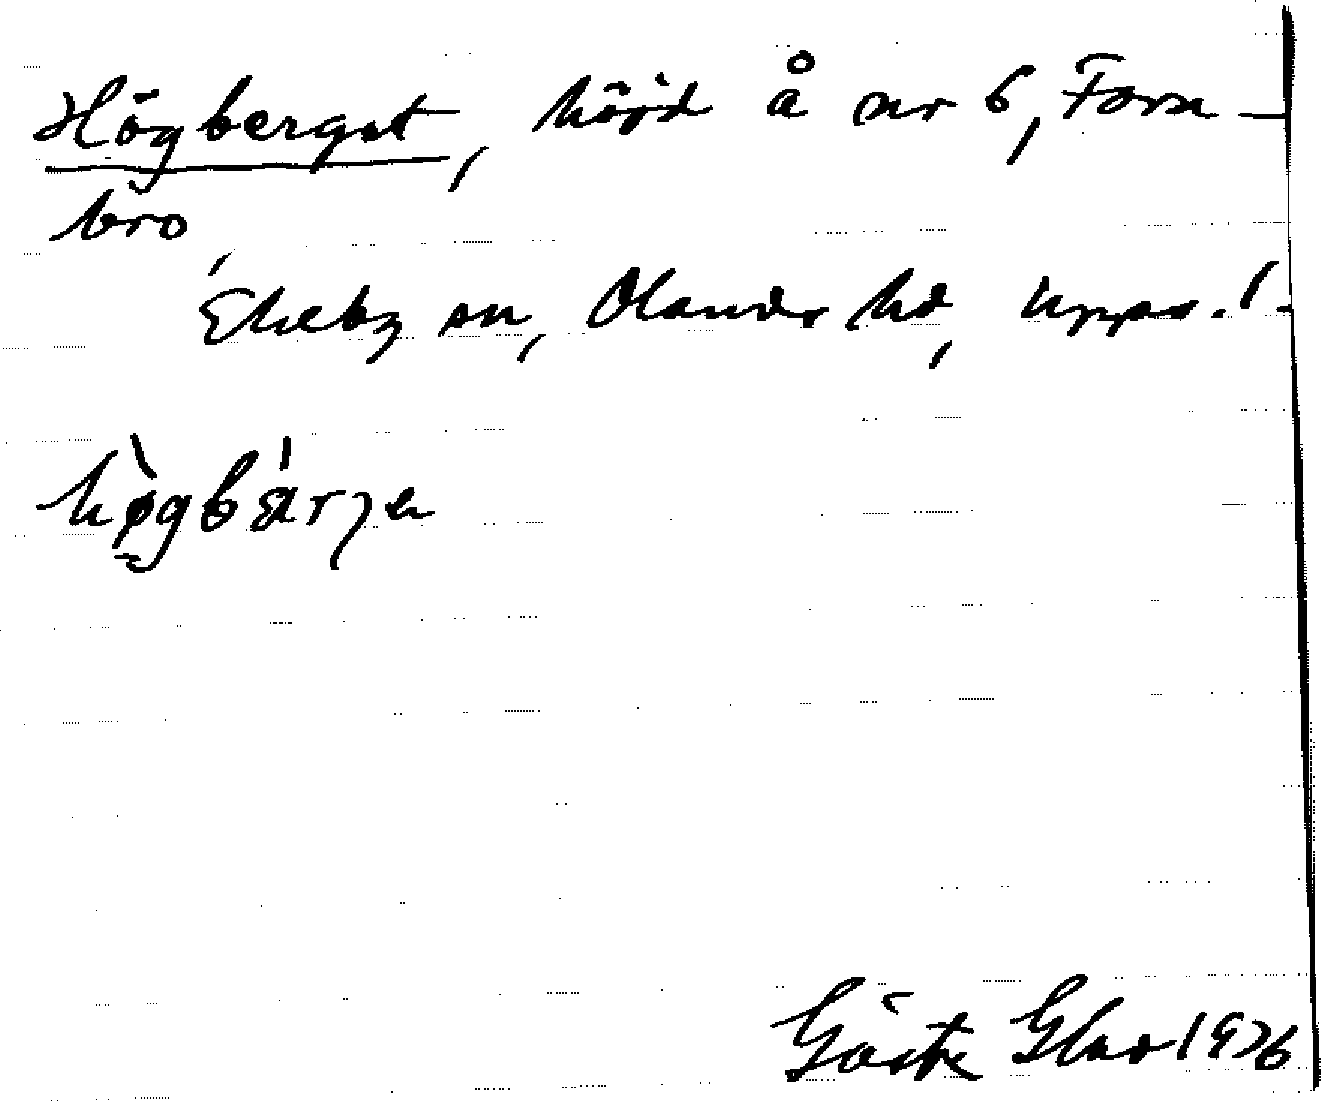 Högberget, höjd å nr 6, Forsa-
bro,
Ekeby sn, Olands hd, Upps. l.
hø̀gbä́rjen
Gösta Glad 1976